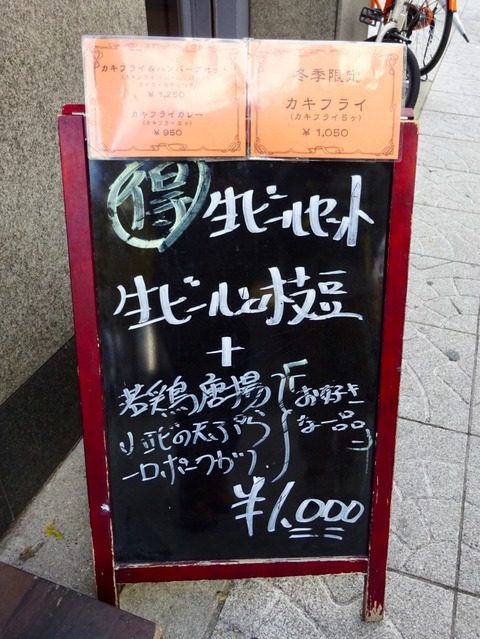 カキフライ&ハンバーグセット
¥1,250
カキフライカレー
(カキフライ2ヶ)
¥950
冬季限定
カキフライ
(カキフライ5ヶ)
¥1,050
得 生ビールセット
生ビール&枝豆
+
若鶏唐揚
小エビの天ぷら
一口ポークカツ
「お好き
な一品」
¥1,000